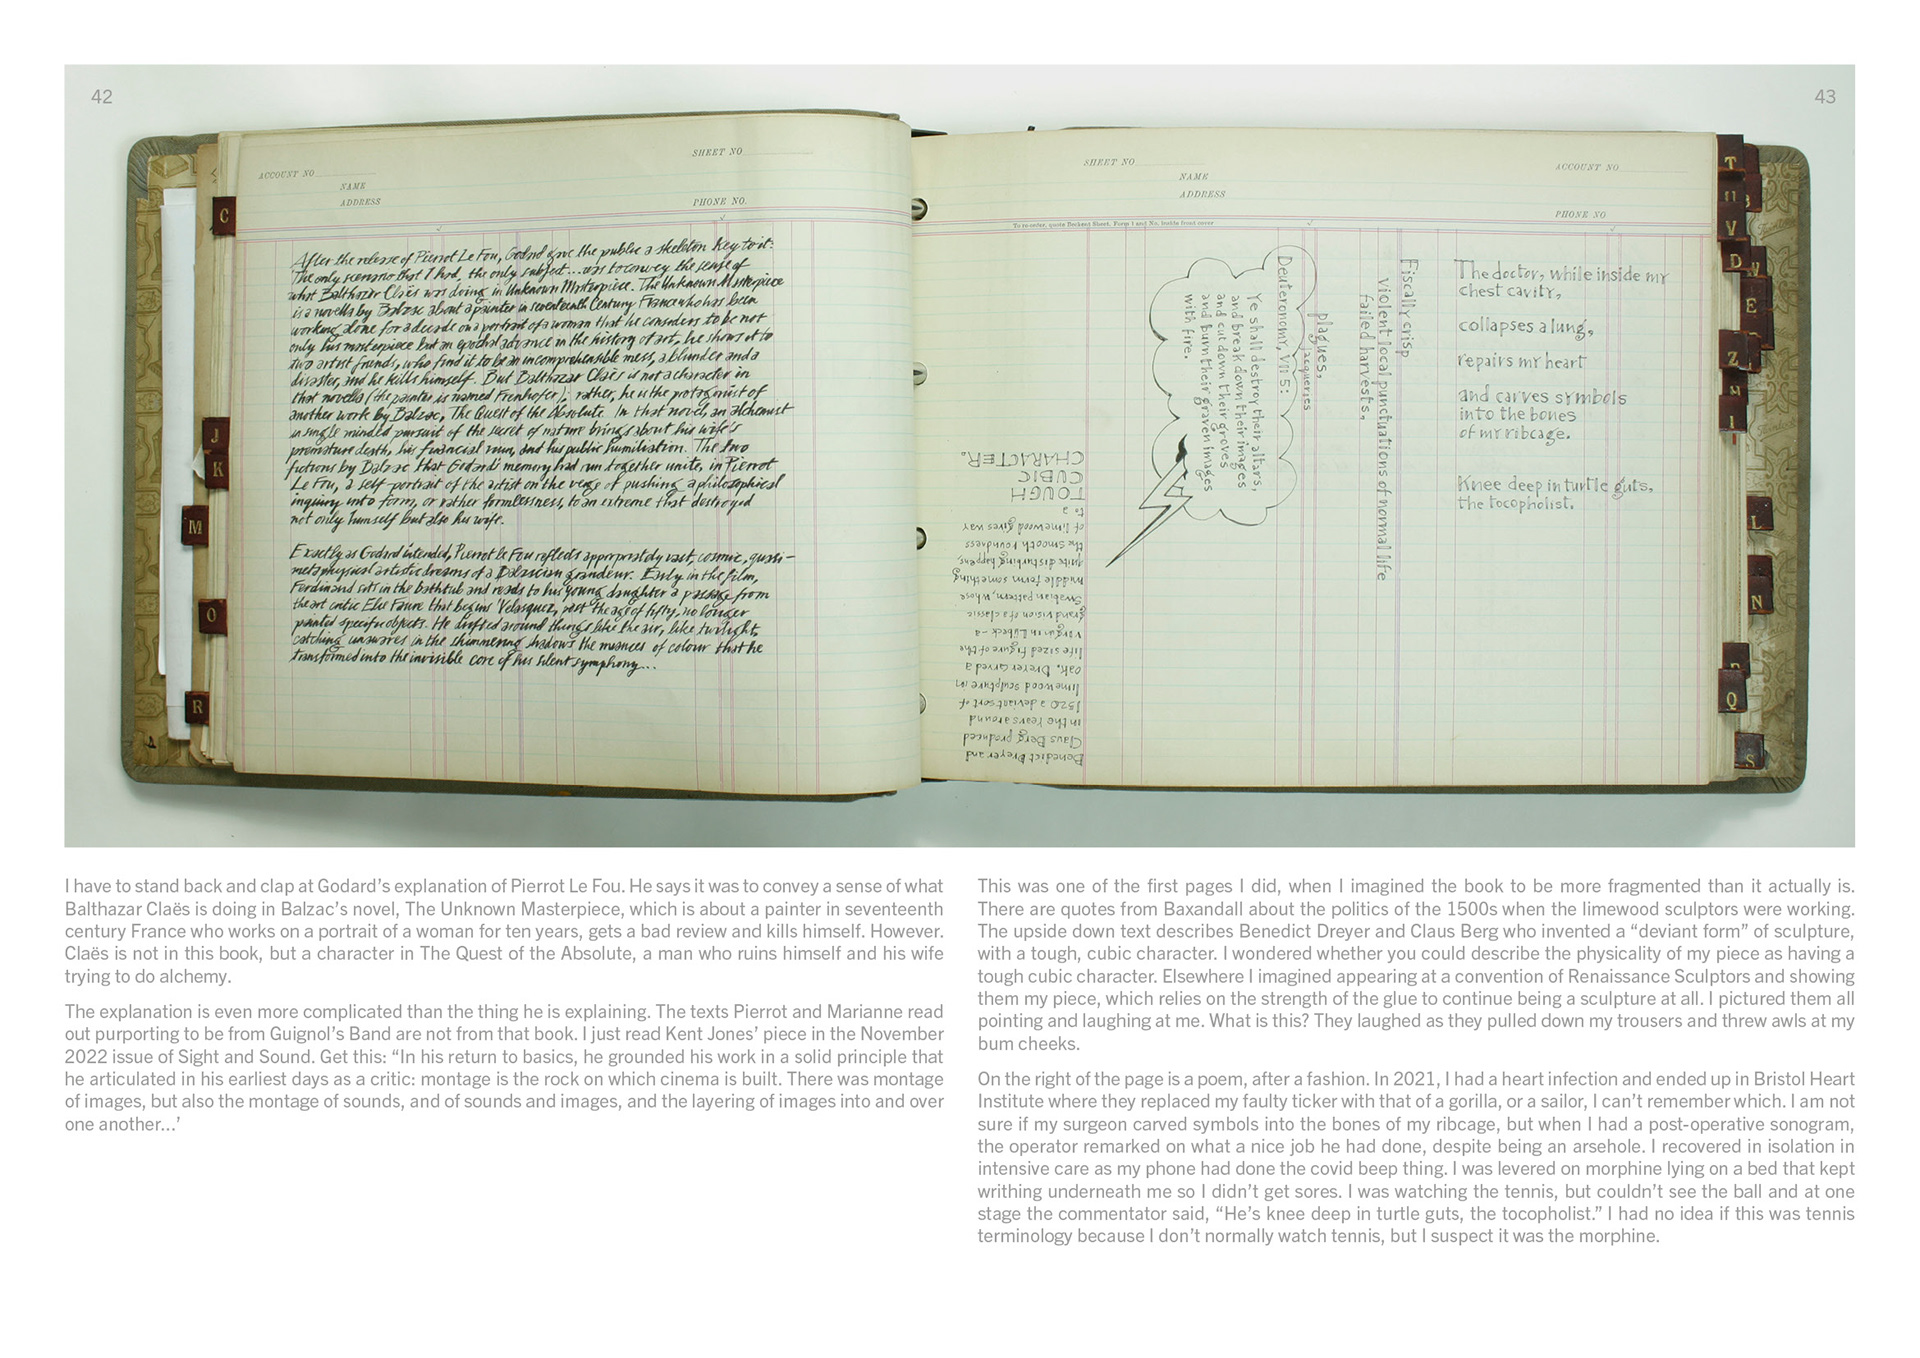 42
43
SHEET NO
ACCOUNT NO
NAME
ADDRESS
PHONE NO.
After the release of Pierrot Le Fou, Godard gave the public a skeleton key to it:
The only scenario that I had, the only subject... was to convey the sense of
what Balthazar Claës was doing in Unknown Masterpiece. The Unknown Masterpiece
is a novella by Balzac about a painter in seventeenth Century France who has been
working alone for a decade on a portrait of a woman that he considers to be not
only his masterpiece but an epochal advance in the history of art, he shows it to
two artist friends, who find it to be an incomprehensible mess, a blunder and a
disaster, and he kills himself. But Balthazar Claës is not a character in
that novella (the painter is named Frenhofer); rather, he is the protagonist of
another work by Balzac, The Quest of the Absolute. In that novel, an alchemist
in single minded pursuit of the secret of nature brings about his wife's
premature death, his financial ruin, and his public humiliation. The two
fictions by Balzac that Godard's memory had run together unite, in Pierrot
Le Fou, a self portrait of the artist on the verge of pushing a philosophical
inquiry into form, or rather formlessness, to an extreme that destroyed
not only himself but also his wife.
Exactly as Godard intended, Pierrot le Fou reflects appropriately vast, cosmic, quasi-
metaphysical artistic dreams of a Balzacian grandeur. Early in the film,
Ferdinand sits in the bathtub and reads to his young daughter a passage from
the art critic Elie Faure that begins Velasquez, past the age of fifty, no longer
painted specific objects. He drifted around things like the air, like twilight,
catching unawares in the shimmering shadows the nuances of colour that he
transformed into the invisible core of his silent symphony...
C
J
K
M
O
R
SHEET NO
ACCOUNT NO
NAME
ADDRESS
PHONE NO
To re-order, quote Beckent Sheet, Form 1 and No. inside front cover
The doctor, while inside my
chest cavity,
collapses a lung,
repairs my heart
and carves symbols
into the bones
of my ribcage.
Knee deep in turtle guts,
the tocopholist.
Fiscally crisp
violent local punctuations of normal life
failed harvests,
plagues,
jacqueries
Deuteronomy VII:5:
Ye shall destroy their altars,
and break down their images
and cut down their groves
and burn their graven images
with fire.
Benedict Dreyer and
Claus Berg produced
in the years around
1520 a deviant sort of
limewood sculpture in
oak, Dreyer carved a
life sized figure of the
virgin in Lübeck – a
grand vision of a classic
Swabian pattern, whose
middle form something
quite disturbing happens,
the smooth roundness
of limewood gives way
to a
TOUGH
CUBIC
CHARACTER.
T
U
V
D
W
E
Z
I
L
N
Q
S
I have to stand back and clap at Godard's explanation of Pierrot Le Fou. He says it was to convey a sense of what
Balthazar Claës is doing in Balzac's novel, The Unknown Masterpiece, which is about a painter in seventeenth
century France who works on a portrait of a woman for ten years, gets a bad review and kills himself. However.
Claës is not in this book, but a character in The Quest of the Absolute, a man who ruins himself and his wife
trying to do alchemy.
The explanation is even more complicated than the thing he is explaining. The texts Pierrot and Marianne read
out purporting to be from Guignol's Band are not from that book. I just read Kent Jones' piece in the November
2022 issue of Sight and Sound. Get this: “In his return to basics, he grounded his work in a solid principle that
he articulated in his earliest days as a critic: montage is the rock on which cinema is built. There was montage
of images, but also the montage of sounds, and of sounds and images, and the layering of images into and over
one another...’
This was one of the first pages I did, when I imagined the book to be more fragmented than it actually is.
There are quotes from Baxandall about the politics of the 1500s when the limewood sculptors were working.
The upside down text describes Benedict Dreyer and Claus Berg who invented a “deviant form” of sculpture,
with a tough, cubic character. I wondered whether you could describe the physicality of my piece as having a
tough cubic character. Elsewhere I imagined appearing at a convention of Renaissance Sculptors and showing
them my piece, which relies on the strength of the glue to continue being a sculpture at all. I pictured them all
pointing and laughing at me. What is this? They laughed as they pulled down my trousers and threw awls at my
bum cheeks.
On the right of the page is a poem, after a fashion. In 2021, I had a heart infection and ended up in Bristol Heart
Institute where they replaced my faulty ticker with that of a gorilla, or a sailor, I can't remember which. I am not
sure if my surgeon carved symbols into the bones of my ribcage, but when I had a post-operative sonogram,
the operator remarked on what a nice job he had done, despite being an arsehole. I recovered in isolation in
intensive care as my phone had done the covid beep thing. I was levered on morphine lying on a bed that kept
writhing underneath me so I didn't get sores. I was watching the tennis, but couldn't see the ball and at one
stage the commentator said, “He's knee deep in turtle guts, the tocopholist.” I had no idea if this was tennis
terminology because I don't normally watch tennis, but I suspect it was the morphine.